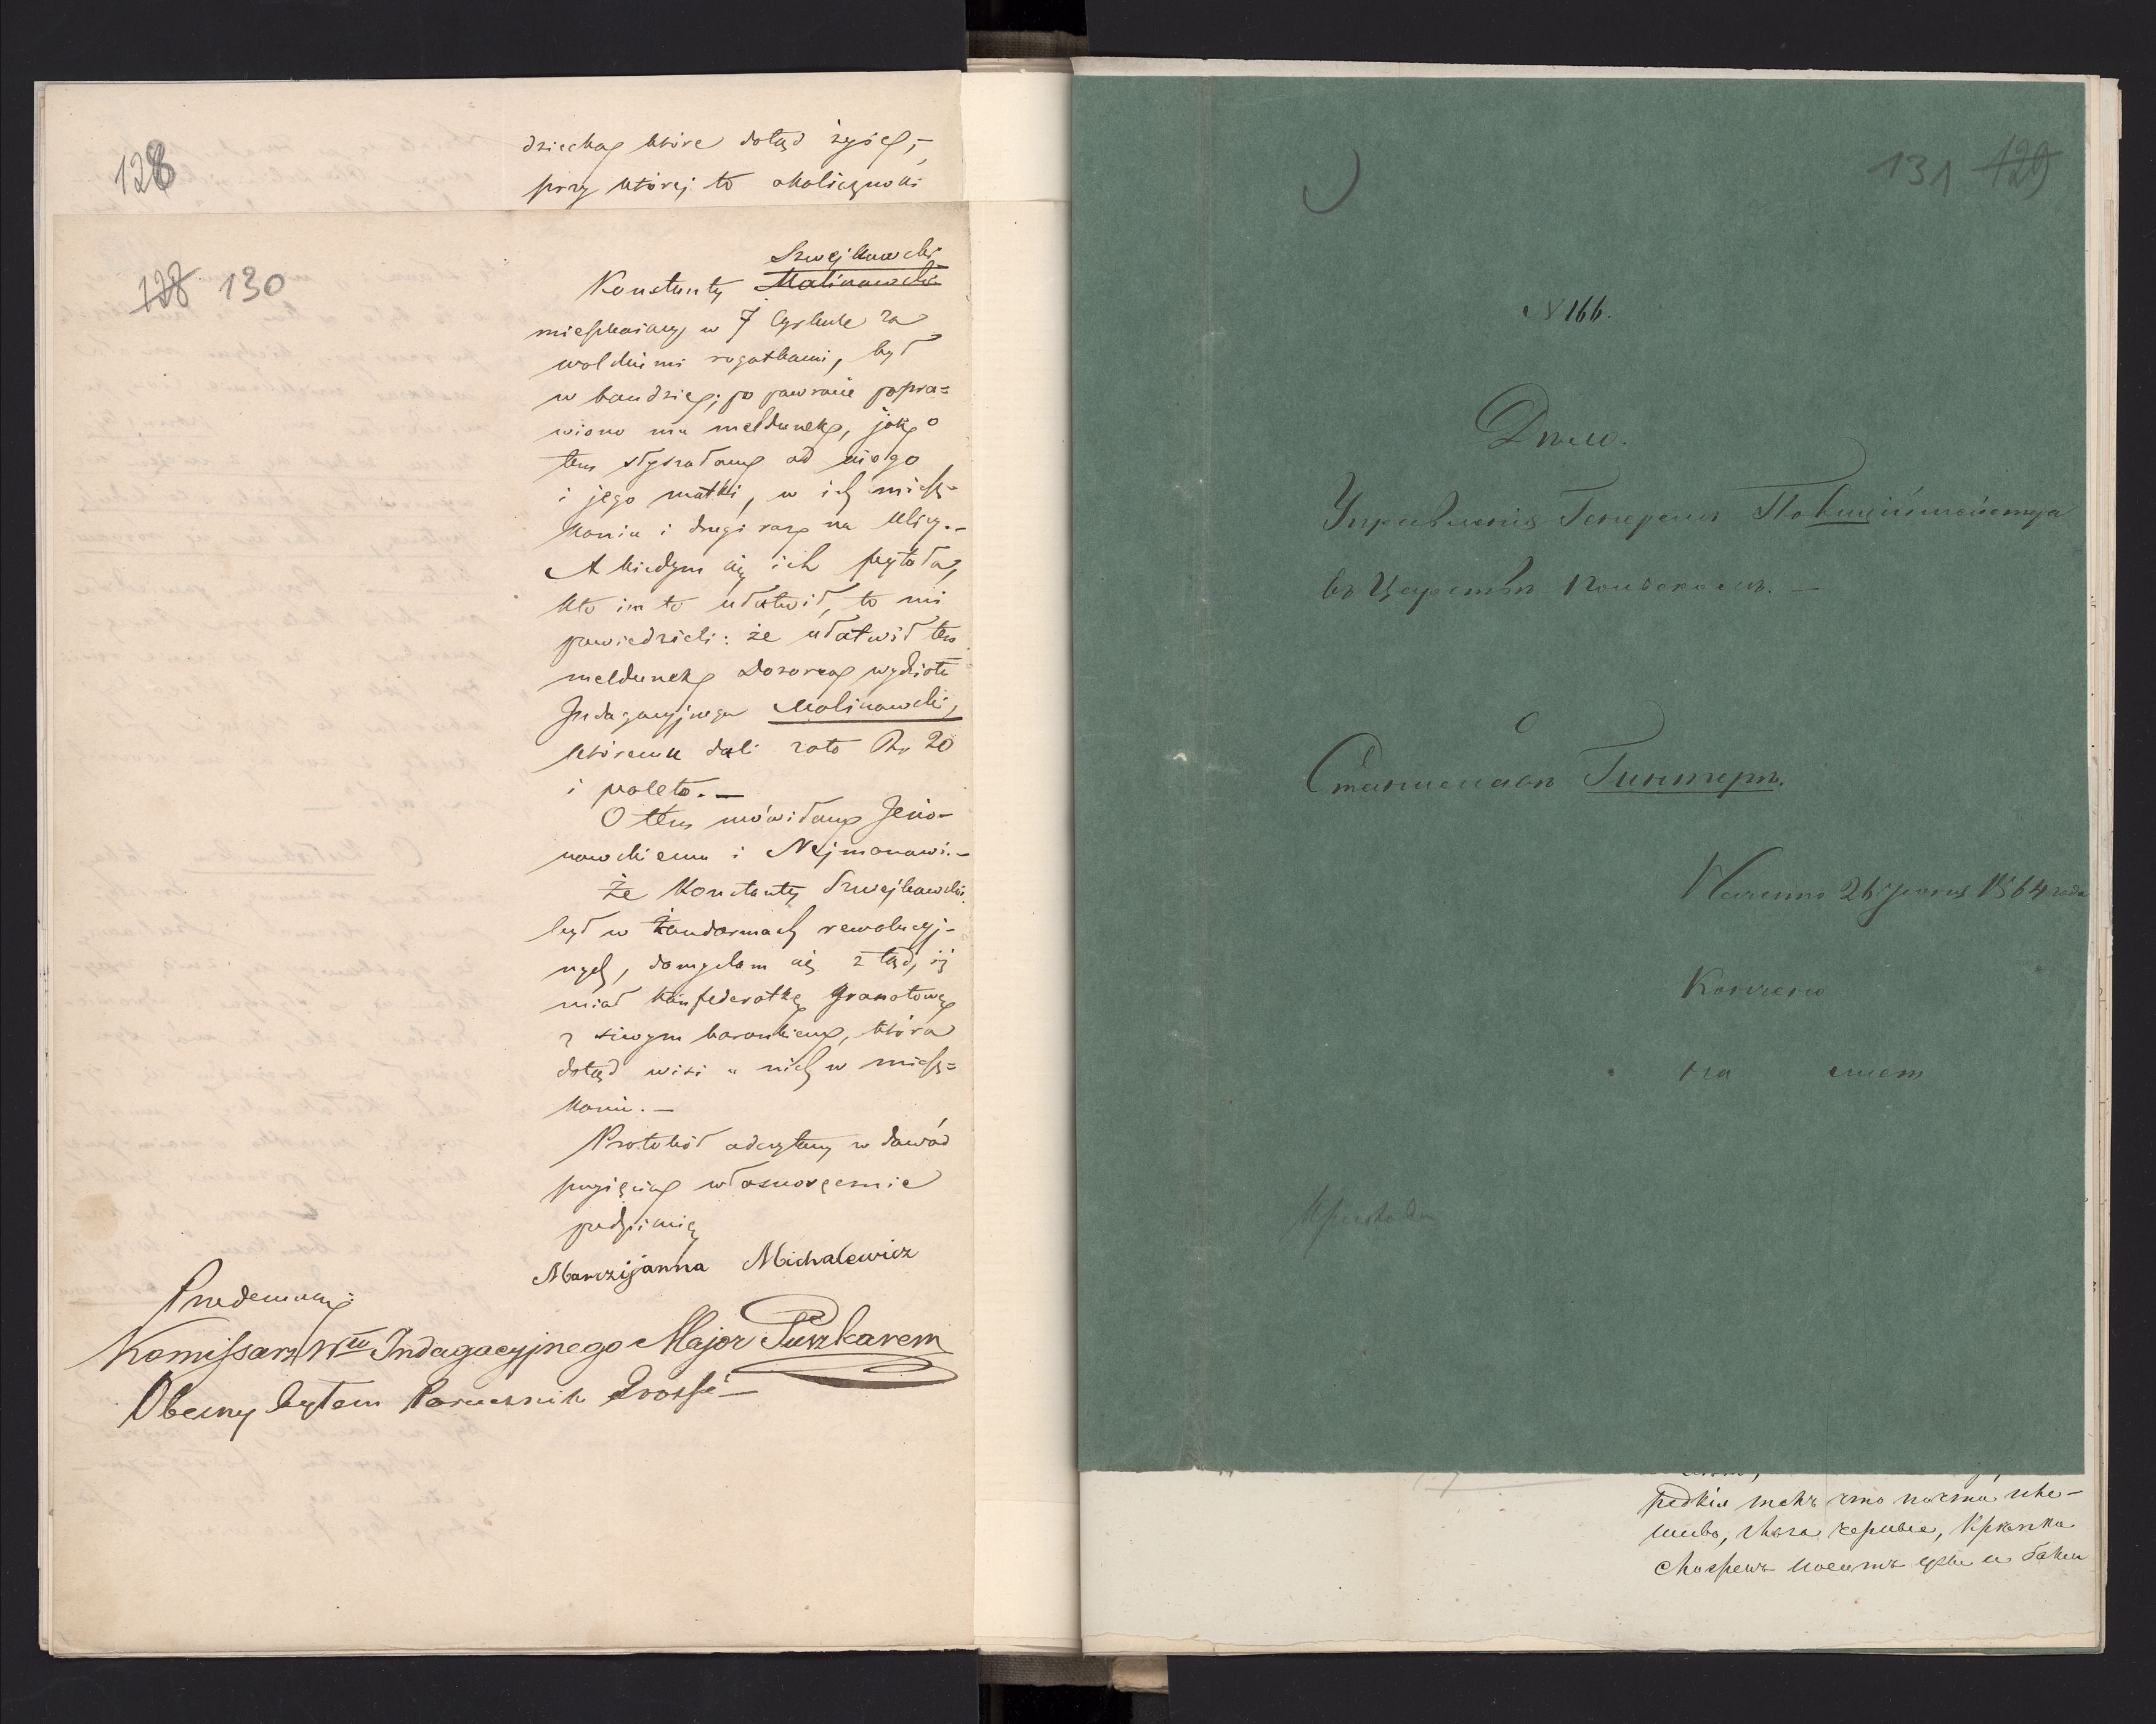 128
dziecka które dotąd żyje,-
przy której to okoliczności
128 130
Szwejkowski
Konstanty Malinowski
mieszkający w 7 Cyrkule za
wolskimi rogatkami, był
w bandzie; po powrocie popra=
wiono mu meldunek, jak o
tem słyszałam od niego
i jego matki, w ich miesz=
kaniu i drugi raz na ulicy.-
A kiedym się ich pytała,
kto im to ułatwił, to mi
powiedzieli: że ułatwił ten
meldunek Dozorca wydziału
Indagacyjnego Malinowski,
któremu dali zato Rs 20
i paleto.-
O tem mówiłam Jeno-
nowskiemu i Nejmanowi.-
Że Konstanty Szwejkowski
był w Żandarmach rewolucyj-
nych, domyślam się z tąd, iż
miał konfederatkę granatową
z siwym barankiem, która
dotąd wisi u nich w miesz=
kaniu.-
Protokół odczytany w dowód
przyjęcia własnoręcznie
podpisuię
Marczijanna Michalewicz
Komissarz Włu Indagacyjnego Major Puszkarew
Obecny byłem Porucznik
131 129
N 166.
Дѣло.
Управленія Генералъ Полиціймейстера
въ Царствѣ Польскомъ.-
О
Станиславѣ Гинтеръ.
Начато 26 Іюня 1864 года
Кончено
На лист
рѣдкія такъ что почти